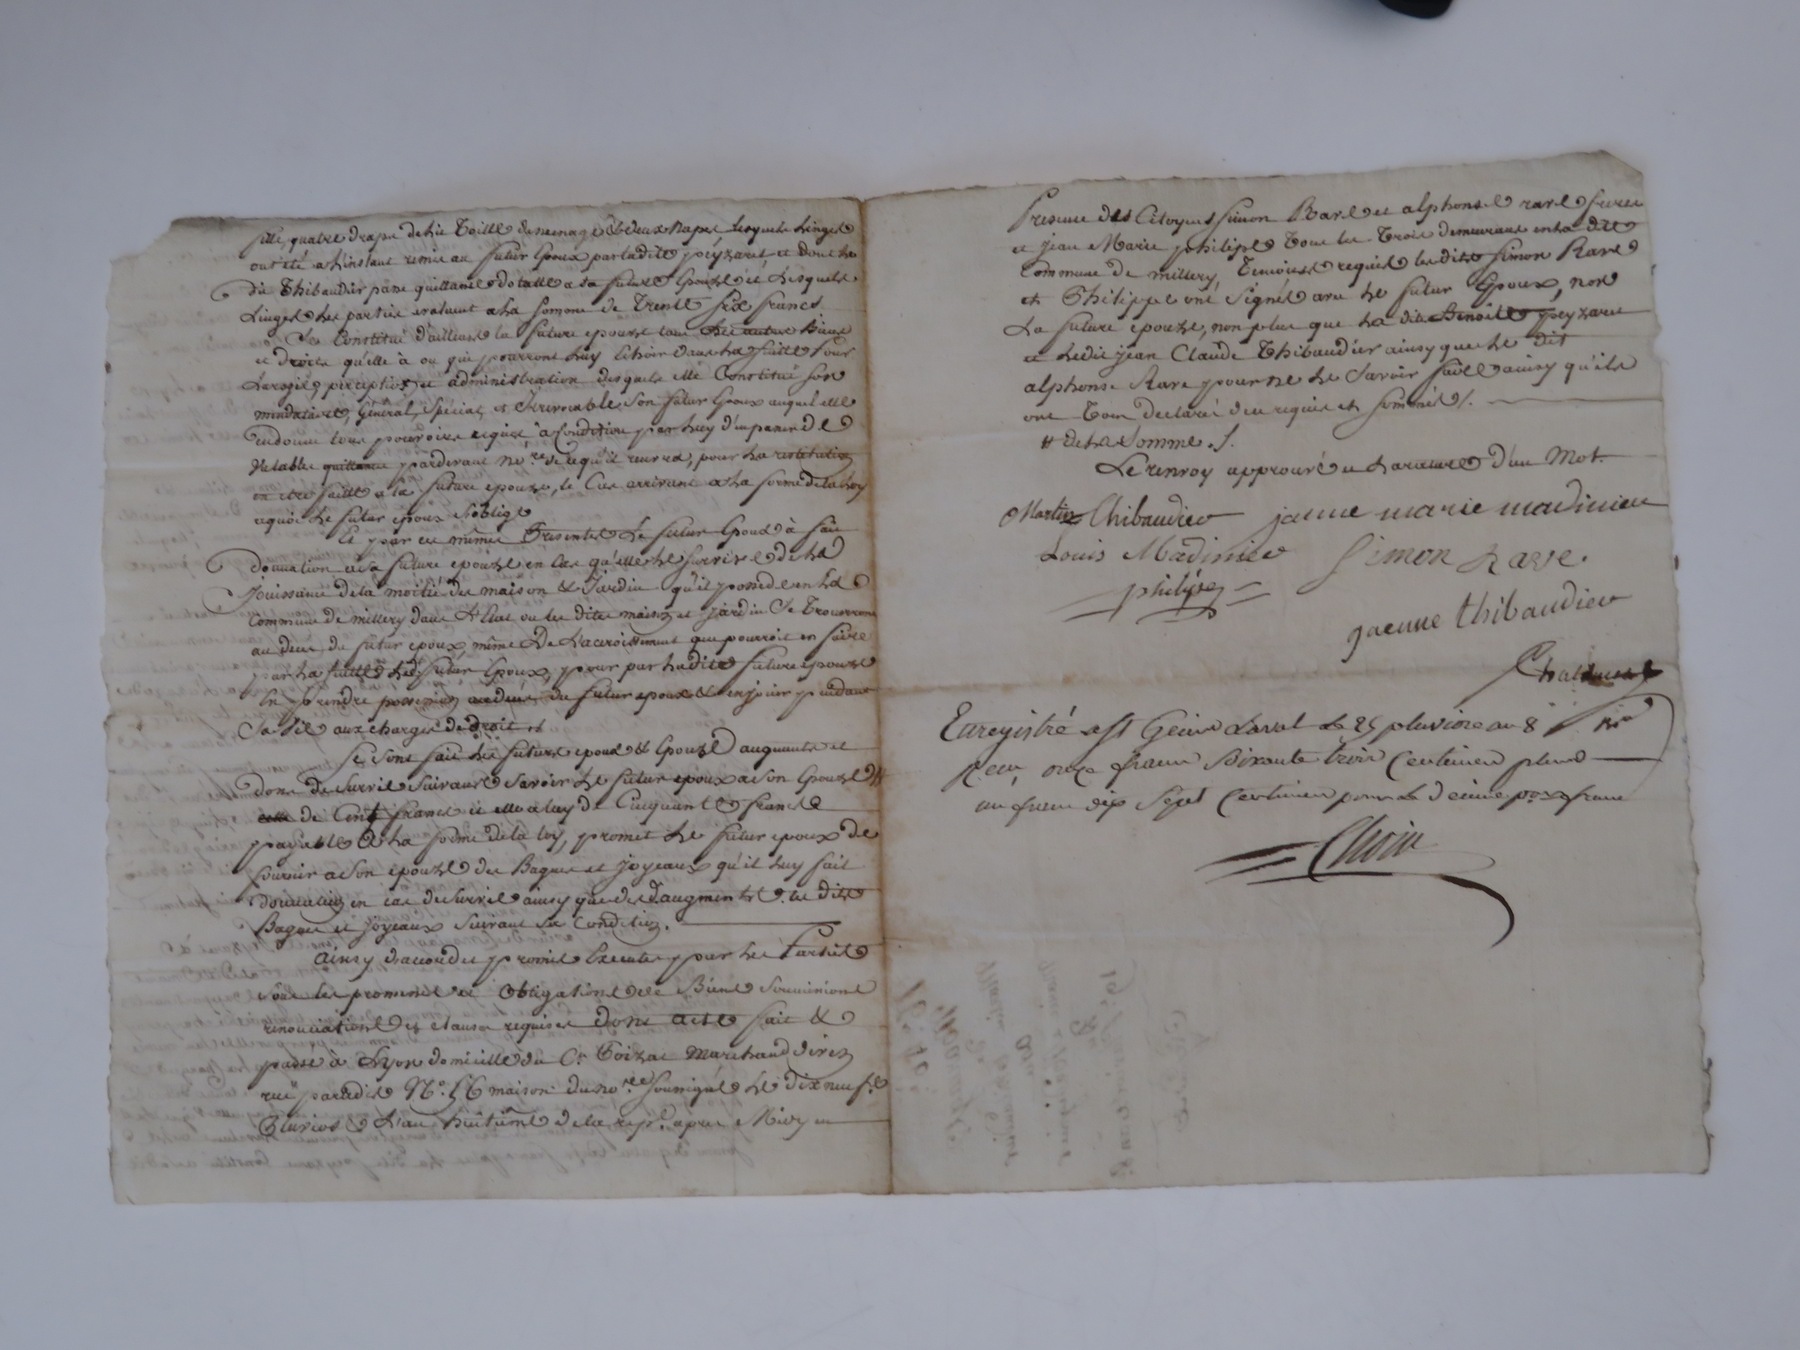 fille, quatre draps de lit Toille de menage & deux Napes Lesquels Linges
ont été a L'instant remis au futur Epoux par la dite peyzaret, et dont le
dit Thibaudier passe quittance dotalle a sa future Epouze et Lesquels
Linges les parties evaluent a la somme de Trente Six francs
Se Constitue d'ailleurs la future epouze tous les autres Biens
et droits qu'elle à ou qui pourront Luy Echoir dans la suitte pour
perception et administration desquels elle Constitue son
mandataire, Général, Spécial et Irrevocable, son futur Epoux auquel elle
en donne tous pouvoirs requis, à Condition par luy d'en passer de
Valables quittances pardevant No.re de ce qu'il recevra, pour la restitution
en etre faitte a la future epouze, le Cas arrivant a la forme de la loy
a quoi le futur epoux s'oblige
Et par ces mêmes Presentes Le futur Epoux à fait
donnation a sa future epouze en Cas qu'elle le survive de la
Jouissance de la moitié des maison & Jardin qu'il possede en la
Commune de millery dans l'Etat ou les dites maison et Jardin Se Trouverront
au deces du futur epoux, même de L'acroissement que pourroit en faire
par la suitte led. futur Epoux, pour par ladite future epouze
En prendre possession au deces du futur epoux & en jouir pendant
Sa Vie aux charges de droit et
Se Sont fait les futurs epoux & Epouze augments et
dons de Survie Suivants Savoir le futur epoux a son Epouze #
de Cent francs et elle a luy de Cinquante francs
payable a la forme de la loy, promet le futur epoux de
fournir a son epouze des Bagues et Joyeaux qu'il luy fait
donnation en cas de survie ainsy que des d. augments les dits
Bagues et Joyeaux suivant sa Condition.
Ainsy d'accord et promis Executer par les Parties
sous les promesses et Obligations de Biens Soumissions
renonciations et clauses requises dont acte fait &
passé à Lyon domicille du C.n Toizac Marchand
rue paradis N.o 56 maison du No.re Soussigné le dix neuf
Pluviose L'an huitième de la rep.e apres Midy en
Presence des Citoyens Simon Rave et alphonse rave freres
et Jean Marie philipe Tous les Trois demeurant en la dite
Commune de millery, Temoins requis les dits Simon Rave
et Philippe ont Signé avec le futur Epoux, non
La future epouze, non plus que la dite Benoite peyzaret
et ledit Jean Claude Thibaudier ainsy que le dit
alphonse Rave pour ne le Savoir faire ainsy qu'ils
ont Tous declaré de ce requis et sommés /.
# de la Somme ./.
Le renvoy approuvé et la rature d'un Mot.
Martin Thibaudier jaenne marie madinier
Louis Madinier Simon rave.
philipe
jaenne thibaudier
Enregistré a St Genis Laval le 25 pluviose an 8
Recu onze francs Soixante trois Centimes plus
un franc dix Sept Centimes pour le decime par franc
Choin